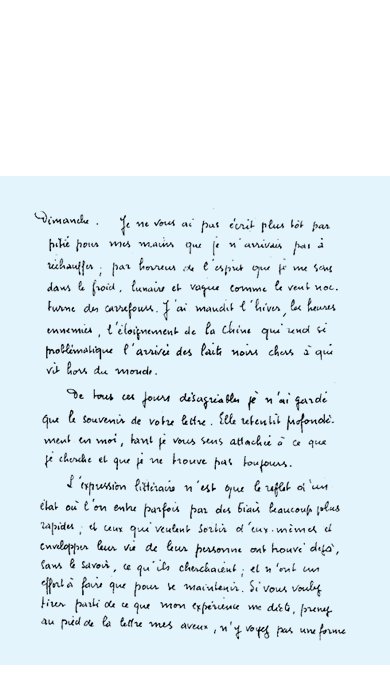 Dimanche. Je ne vous ai pas écrit plus tôt par
pitié pour mes mains que je n'arrivais pas à
réchauffer, par horreur de l'esprit que je me sens
dans le froid, lunaire et vague comme le vent noc-
turne des carrefours. J'ai maudit l'hiver, les heures
ennemies, l'éloignement de la Chine qui rend si
problématique l'arrivée des laits noirs chers à qui
vit hors du monde.
De tous ces jours désagréables je n'ai gardé
que le souvenir de votre lettre. Elle retentit profondé-
ment en moi, tant je vous sens attachée à ce que
je cherche et que je ne trouve pas toujours.
L'expression littéraire n'est que le reflet d'un
état où l'on entre parfois par des biais beaucoup plus
rapides; et ceux qui veulent sortir d'eux-mêmes et
envelopper leur vie de leur personne ont trouvé déjà,
sans le savoir, ce qu'ils cherchaient; et n'ont un
effort à faire que pour se maintenir. Si vous voulez
tirer parti de ce que mon expérience me dicte, prenez
au pied de la lettre mes aveux, n'y voyez pas une forme